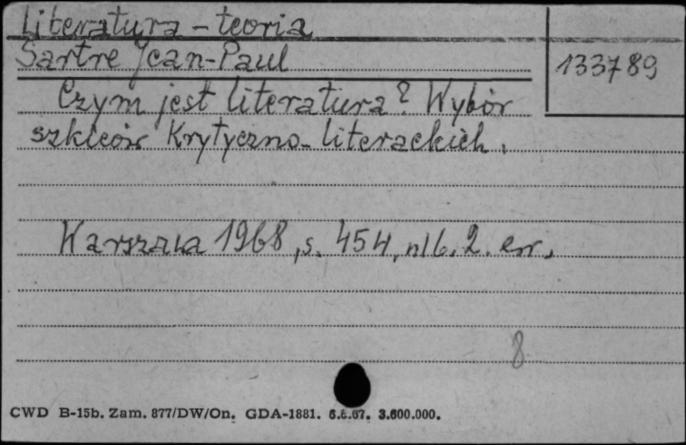 Literatura - teoria
Sartre Jean-Paul
133789
Czym jest literatura? Wybór
szkiców Krytyczno-literackich.
Warszawa 1968, s. 454, nlb. 2. err.
8
CWD B-15b. Zam. 877/DW/On. GDA-1881. 6.6.67. 3.600.000.